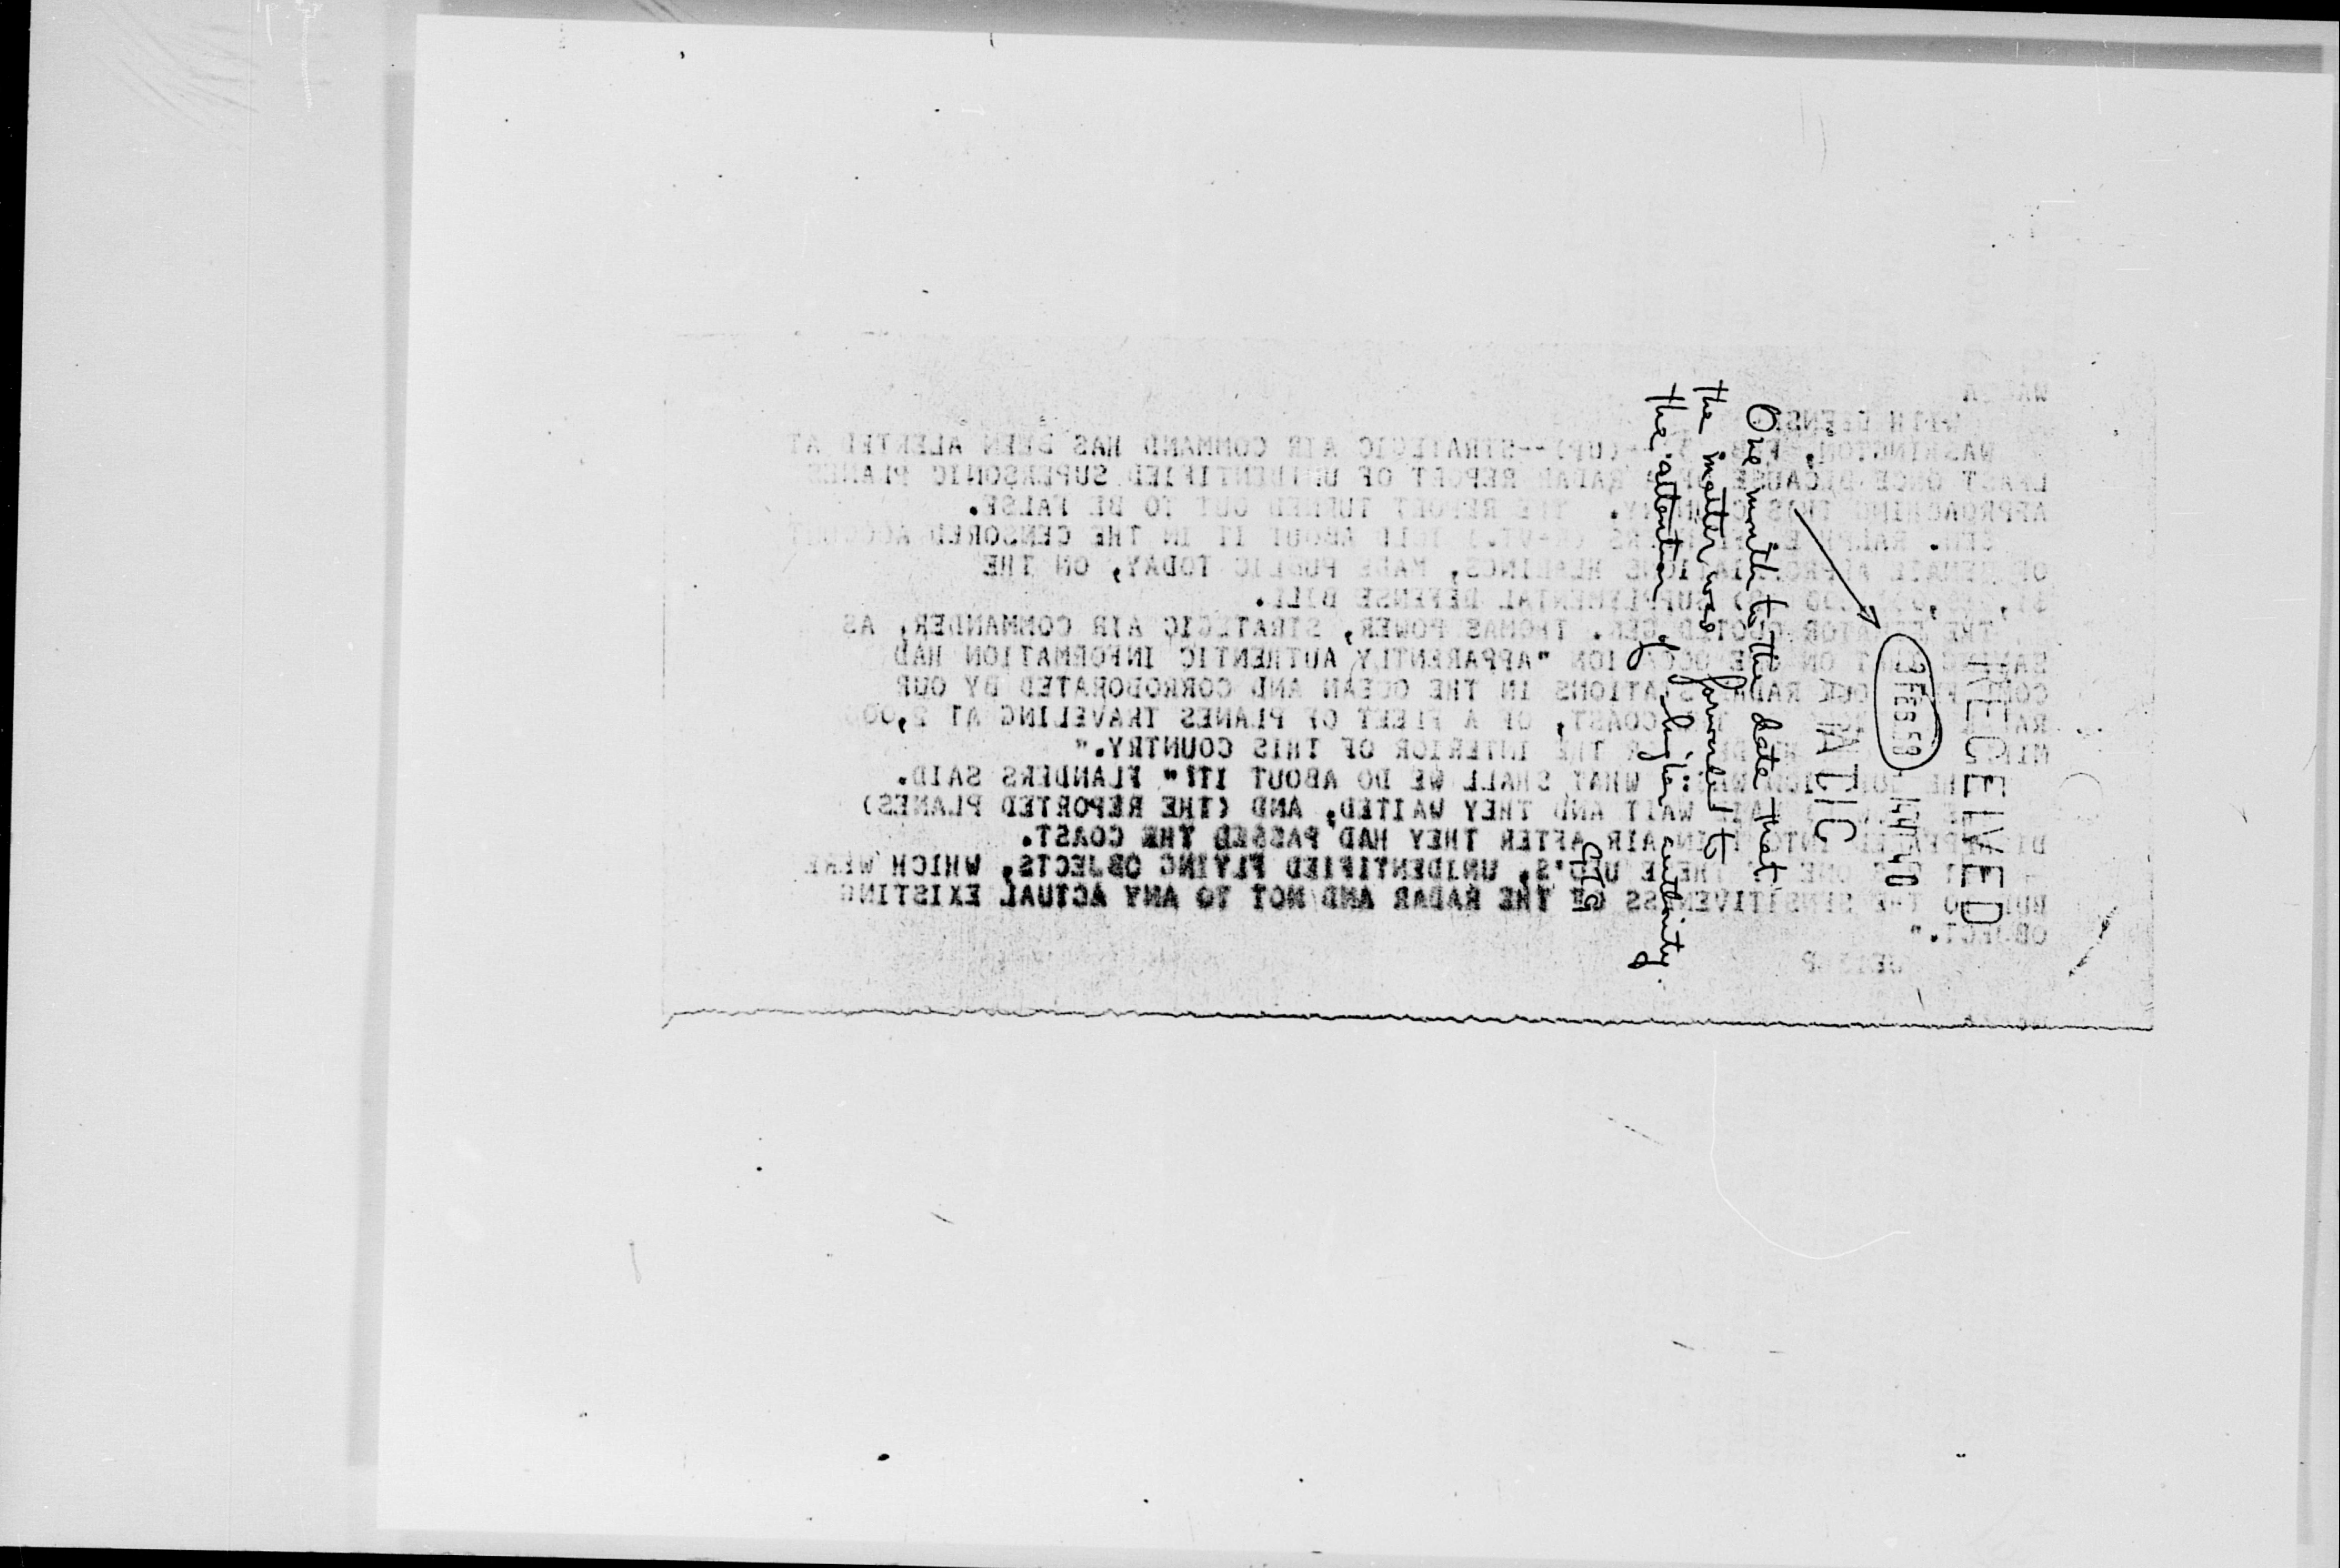 WITH DEFENSE
WASHINGTON, FEB. 3 --(UP)--STRATEGIC AIR COMMAND HAS BEEN ALERTED AT
LEAST ONCE BECAUSE OF A RADAR REPORT OF UNIDENTIFIED SUPERSONIC PLANES
APPROACHING THIS COUNTRY. THE REPORT TURNED OUT TO BE FALSE.
SEN. RALPH E. FLANDERS (R-VT.) TOLD ABOUT IT IN THE CENSORED ACCOUNT
OF SENATE APPROPRIATIONS HEARINGS, MADE PUBLIC TODAY, ON THE
SUPPLEMENTAL DEFENSE BILL.
THE SENATOR QUOTED GEN. THOMAS POWER, STRATEGIC AIR COMMANDER, AS
SAYING THAT ON ONE OCCASION "APPARENTLY AUTHENTIC INFORMATION HAD
COME FROM OUR RADAR STATIONS IN THE OCEAN AND CORROBORATED BY OUR
RADAR COAST, OF A FLEET OF PLANES TRAVELING AT 2,000
MILES THE INTERIOR OF THIS COUNTRY."
THE QUESTION WAS: WHAT SHALL WE DO ABOUT IT?" FLANDERS SAID.
WAIT AND THEY WAITED, AND (THE REPORTED PLANES)
DISAPPEARED INTO THIN AIR AFTER THEY HAD PASSED THE COAST.
ONE OF THESE UFO'S, UNIDENTIFIED FLYING OBJECTS, WHICH WERE
DUE TO THE SENSITIVENESS OF THE RADAR AND NOT TO ANY ACTUAL EXISTING
OBJECT."
RECEIVED
3 FEB 58 14 40
ATIC
One month to the date that
the matter was forwarded to
the attention of higher authority.
GTG